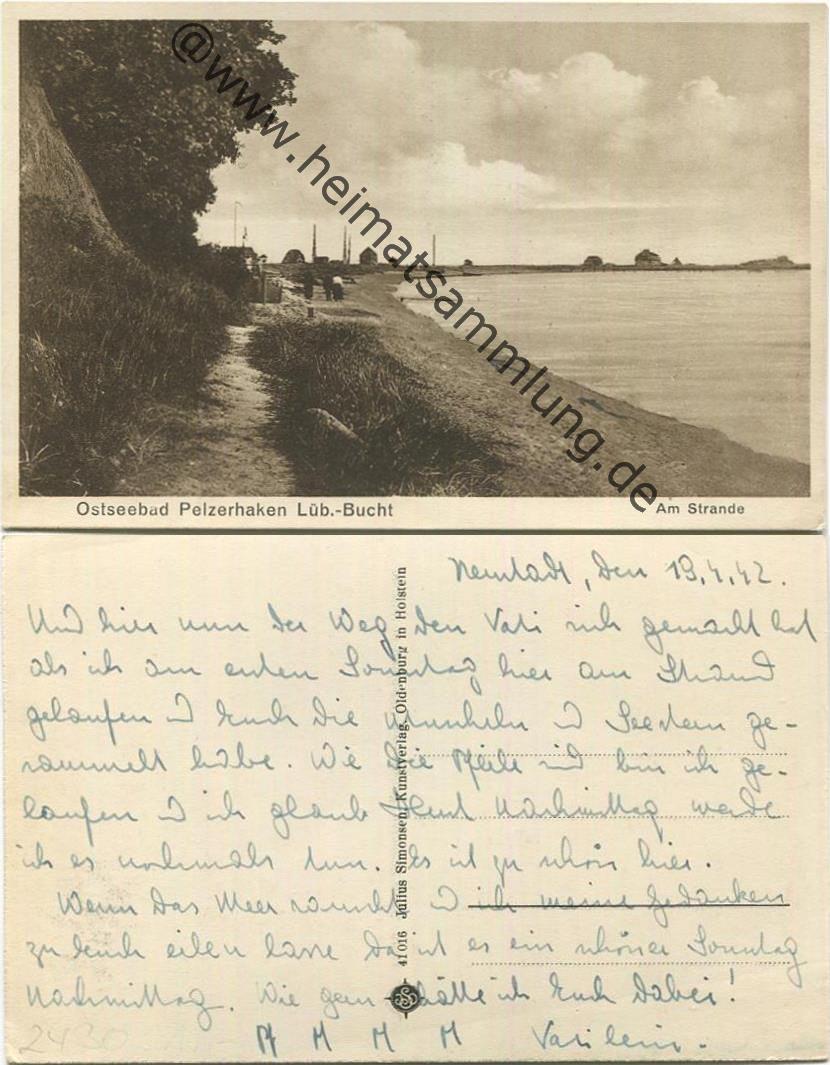 @www.heimatsammlung.de
Ostseebad Pelzerhaken Lüb.-Bucht
Am Strande
Neustadt, den 19.4.42.
Und hier nun der Weg den Vati sich gemacht hat
als ich am ersten Sonntag hier am Strand
gelaufen u Euch die Muscheln u Seestern ge-
sammelt habe. Wie die Pfeile sind bin ich ge-
laufen u ich glaube Heut Nachmittag werde
ich es nochmals tun. Es ist zu schön hier.
Wenn das Meer rauscht u ich meine Gedanken
zu Euch eilen lasse da ist es ein schöner Sonntag
Nachmittag. Wie gern hätte ich Euch dabei!
Vatilein.
2430
41016 Julius Simonsen, Kunstverlag, Oldenburg in Holstein